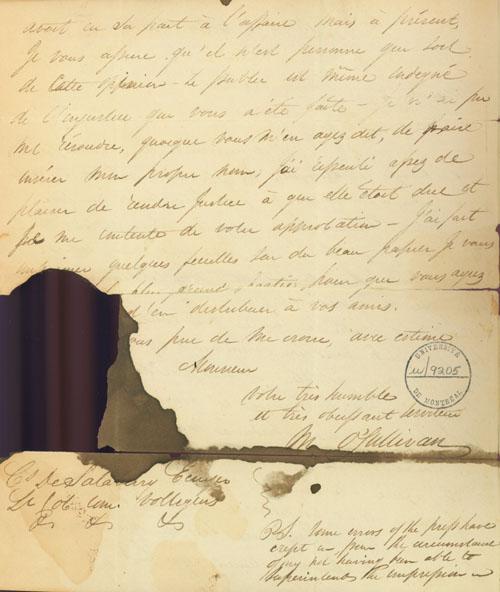 avoit eu Sa part à l'affaire mais à présent,
Je vous assure qu'il n'est personne qui soit
de cette opinion - le public est même indigné
de l'injustice qui vous a été faite - Je n'ai pu
me résoudre, quoique vous m'en ayez dit, de faire
insérer mon propre nom, j'ai ressenti assez de
plaisir de rendre Justice à qui elle étoit due et
Je me contente de votre approbation - J'ai fait
imprimer quelques feuilles sur du beau papier Je vous
pour que vous ayez
d'en distribuer à vos amis.
vous prie de me croire avec estime
Monsieur
Votre très humble
et très obéissant serviteur
M O'Sullivan
UNIVERSITÉ
u/9205
DE MONTRÉAL
Cs De Salaberry Ecuyer
Lt Col Com Voltigeurs
&c &c &c
P.S. Some errors of the press have
crept in from the circumstance
of my not having been able to
Superintend the impression